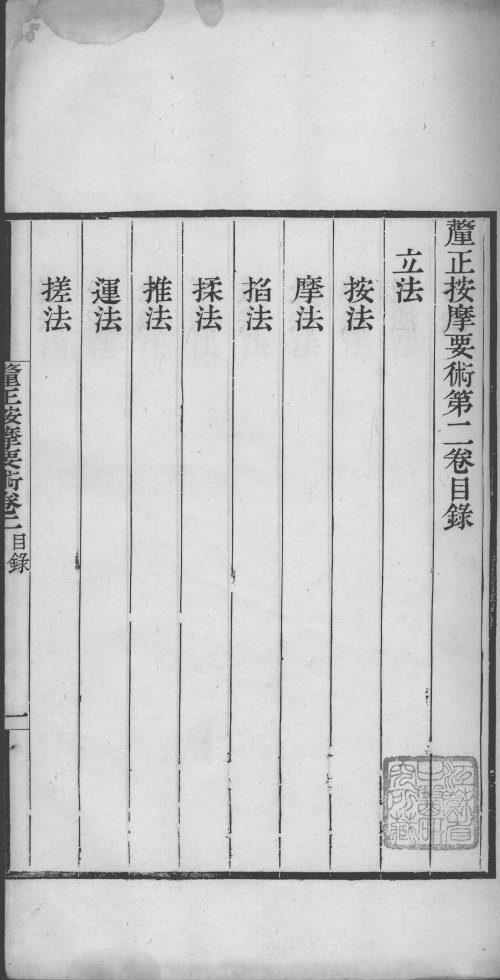 釐正按摩要術第二卷目錄
立法
按法
摩法
掐法
揉法
推法
運法
搓法
釐正按摩要術卷二 目錄
一